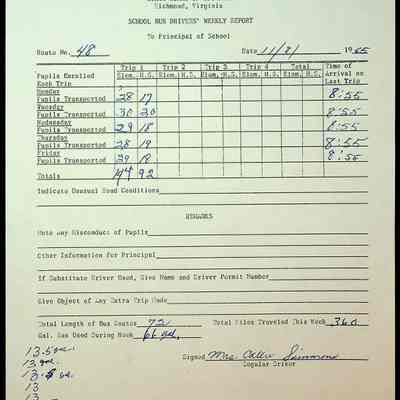 Richmond, Virginia
SCHOOL BUS DRIVERS' WEEKLY REPORT
To Principal of School
Route No. 48 Date 11/8/ 1965
Trip 1 Trip 2 Trip 3 Trip 4 Total Time of
Pupils Enrolled Elem. H.S. Elem. H.S. Elem. H.S. Elem. H.S. Elem. H.S. Arrival on
Each Trip Last Trip
Monday
Pupils Transported 28 17 8:55
Tuesday
Pupils Transported 30 20 8:55
Wednesday
Pupils Transported 29 18 8:55
Thursday
Pupils Transported 28 19 8:55
Friday
Pupils Transported 29 18 8:55
Totals 92
Indicate Unusual Road Conditions
REMARKS
Note Any Misconduct of Pupils
Other Information for Principal
If Substitute Driver Used, Give Name and Driver Permit Number
Give Object of Any Extra Trip Made
Total Length of Bus Seats 72 Total Miles Traveled This Week 360
Gal. Gas Used During Week 66 gal.
13.5 gal.
13. gal.
Signed Mrs. Simmons
13.5 gal. Regular Driver
13
13.